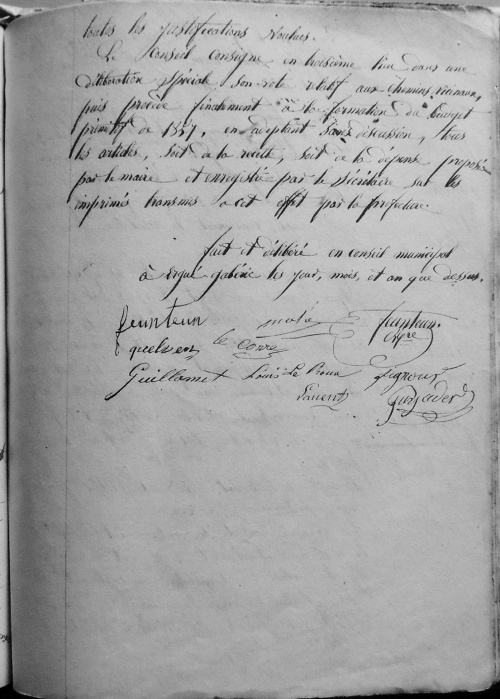 toutes les justifications voulues.
Le Conseil consigne en troisième lieu dans une
délibération spéciale son vote relatif aux chemins vicinaux,
puis procède finalement à la formation du budget
primitif de 1857, en adoptant sans discussion, tous
les articles, soit de la recette, soit de la dépense proposés
par le maire et enregistrés par le secrétaire sur les
imprimés transmis à cet effet par la préfecture.
fait et délibéré en conseil municipal
à ergué gabéric les jour, mois, et an que dessus.
feunteun
le Corre
Guillamet Louis Le Roux